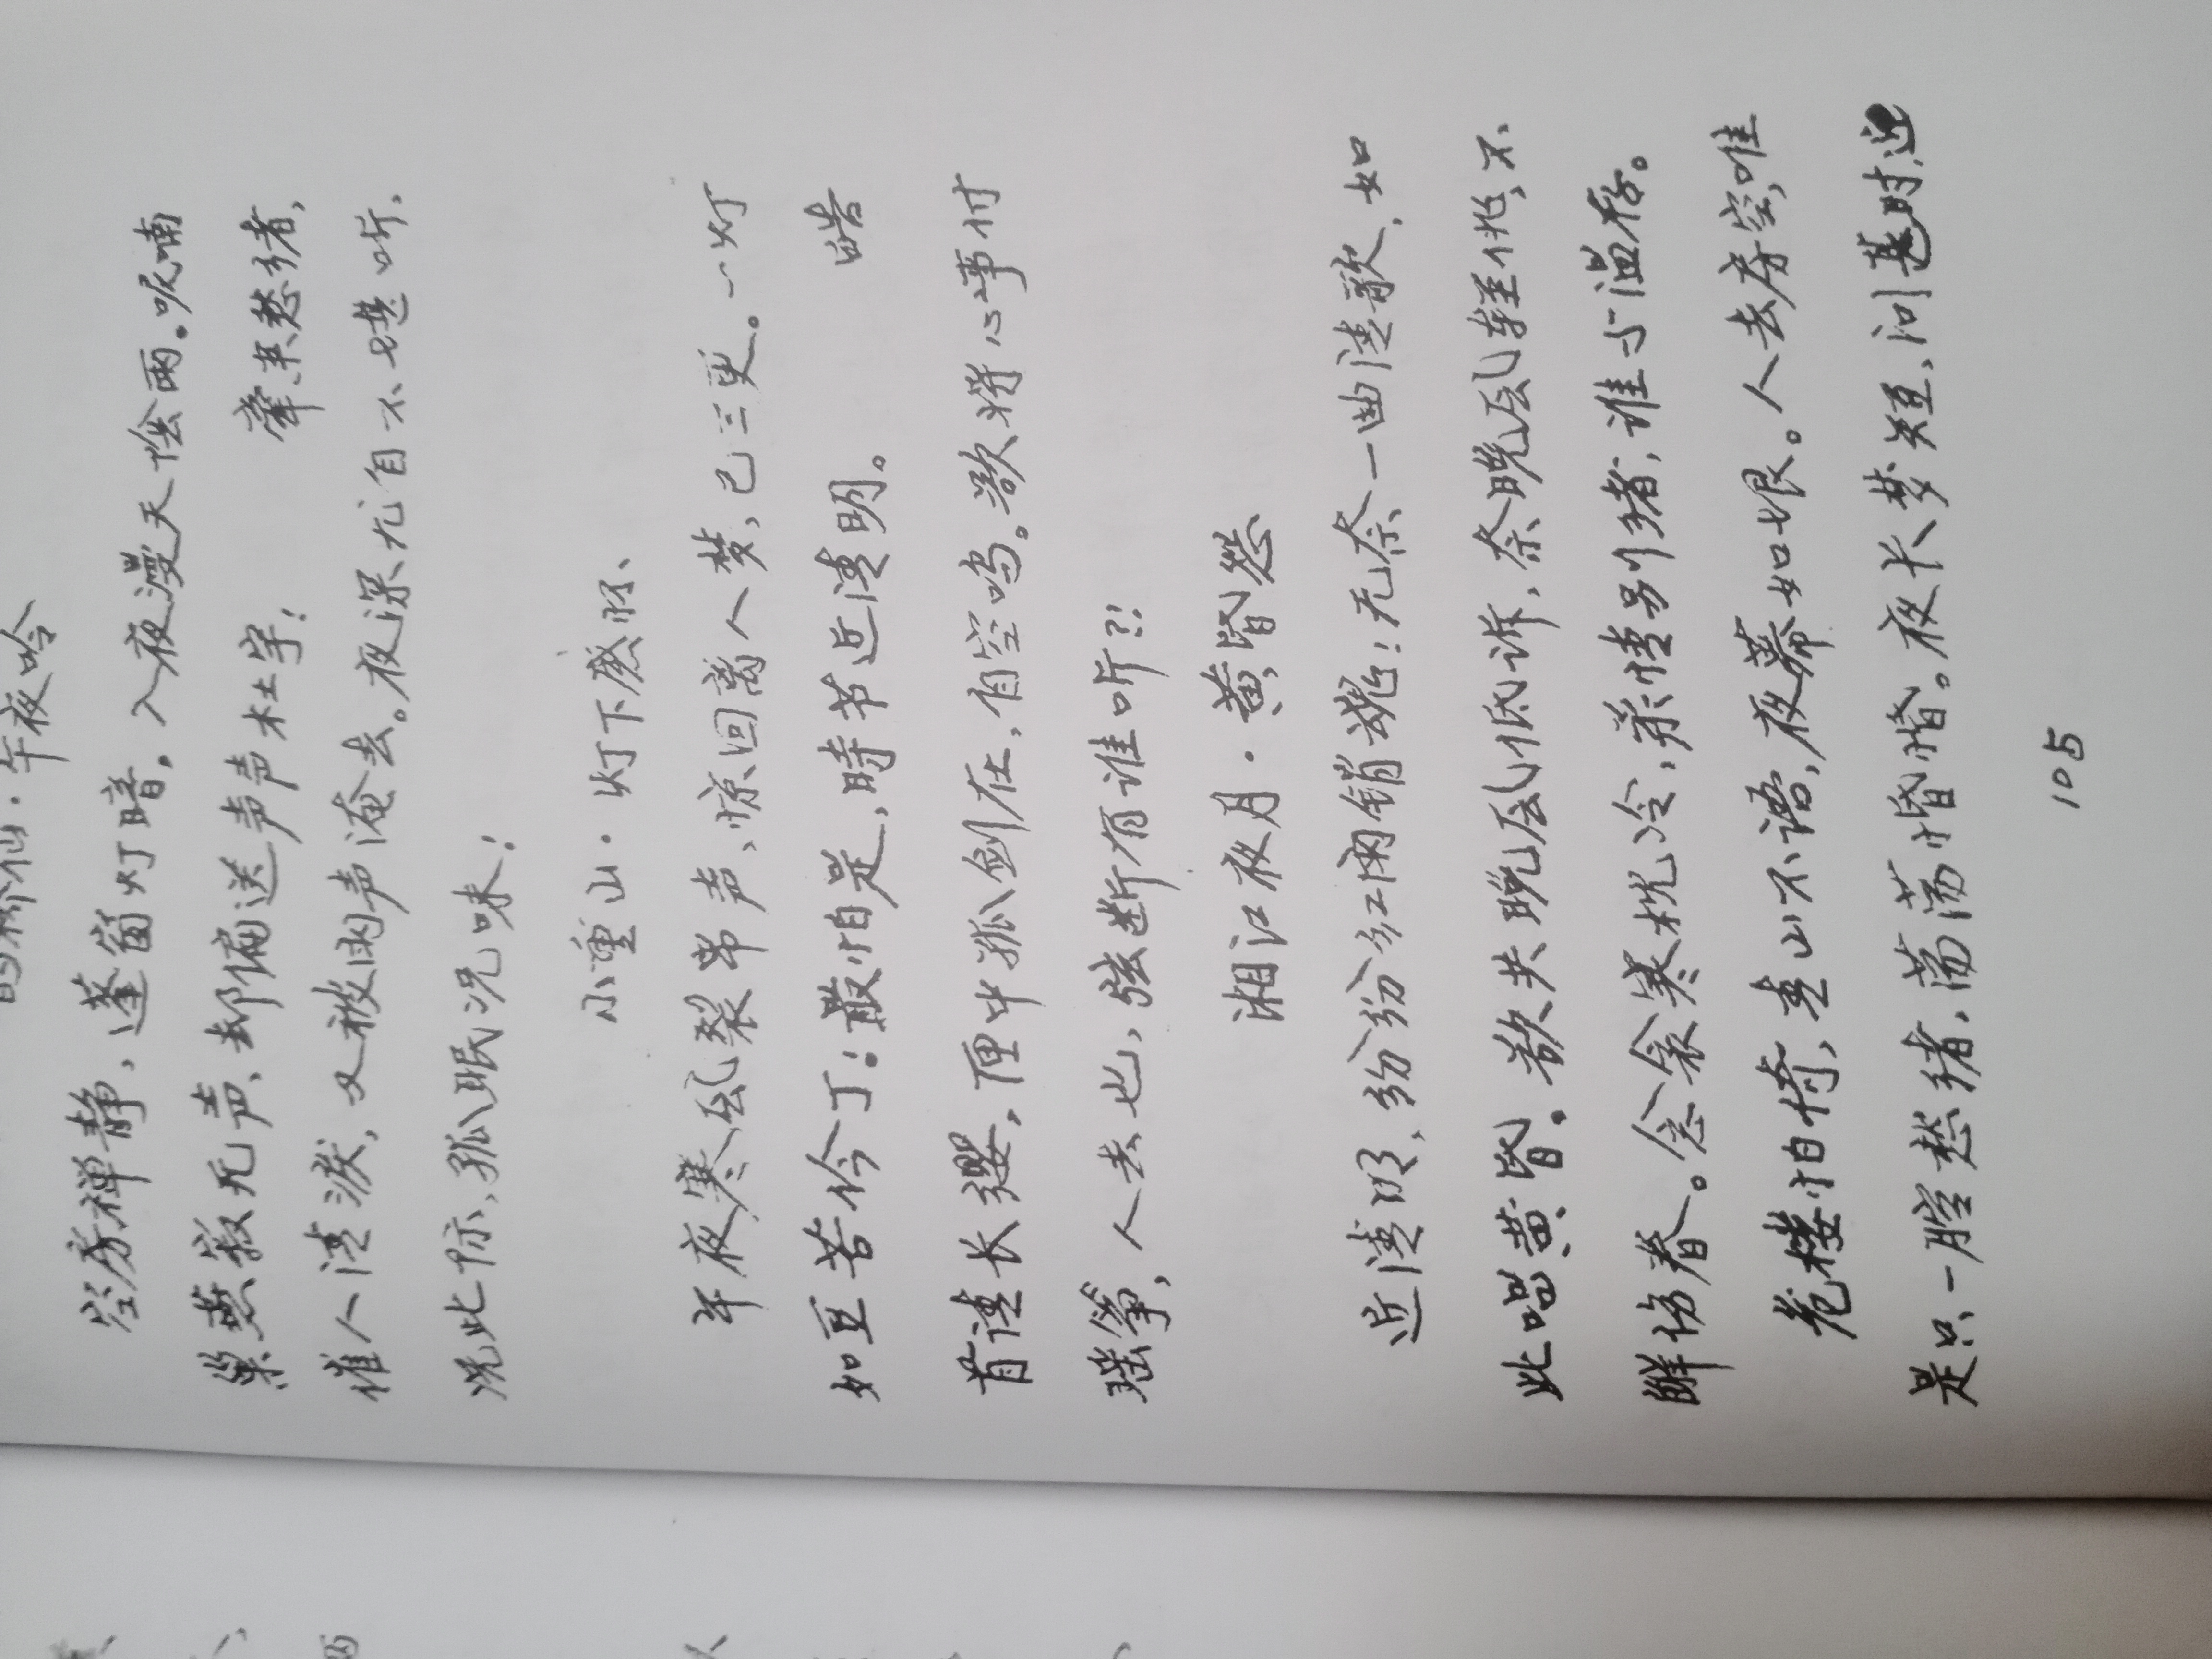 鹊桥仙·午夜吟
空房禅静、蓬窗灯暗，入夜漫天阴雨。呢喃
巢燕寂无声、却偏送声声杜宇！ 牵来愁绪，
催人清泪，又被雨声淹去。夜深尤自不堪听，
况此际、孤眠况味！
小重山·灯下感怀、
午夜寒风裂帛声、惊回离人梦，已三更。一灯
如豆苦伶丁：最怕是，時节近清明。 皓
首请长缨，匣中孤剑在，自空鸣。欲将心事付
瑶筝，人去也，弦断有谁听？！
湘江夜月·黄昏怨
近清明、纷纷红雨销魂！无奈一曲清歌、如
此啚黄昏。欲共晚风低诉，奈晚风轻佻、不
解伤春。念衾寒枕冷、离情别绪，谁与温存。
危楼怕倚，青山不语，夜幕如垠。人去房空，唯
是只一腔愁绪，荡荡惛惛。夜长梦短，问甚时、
105